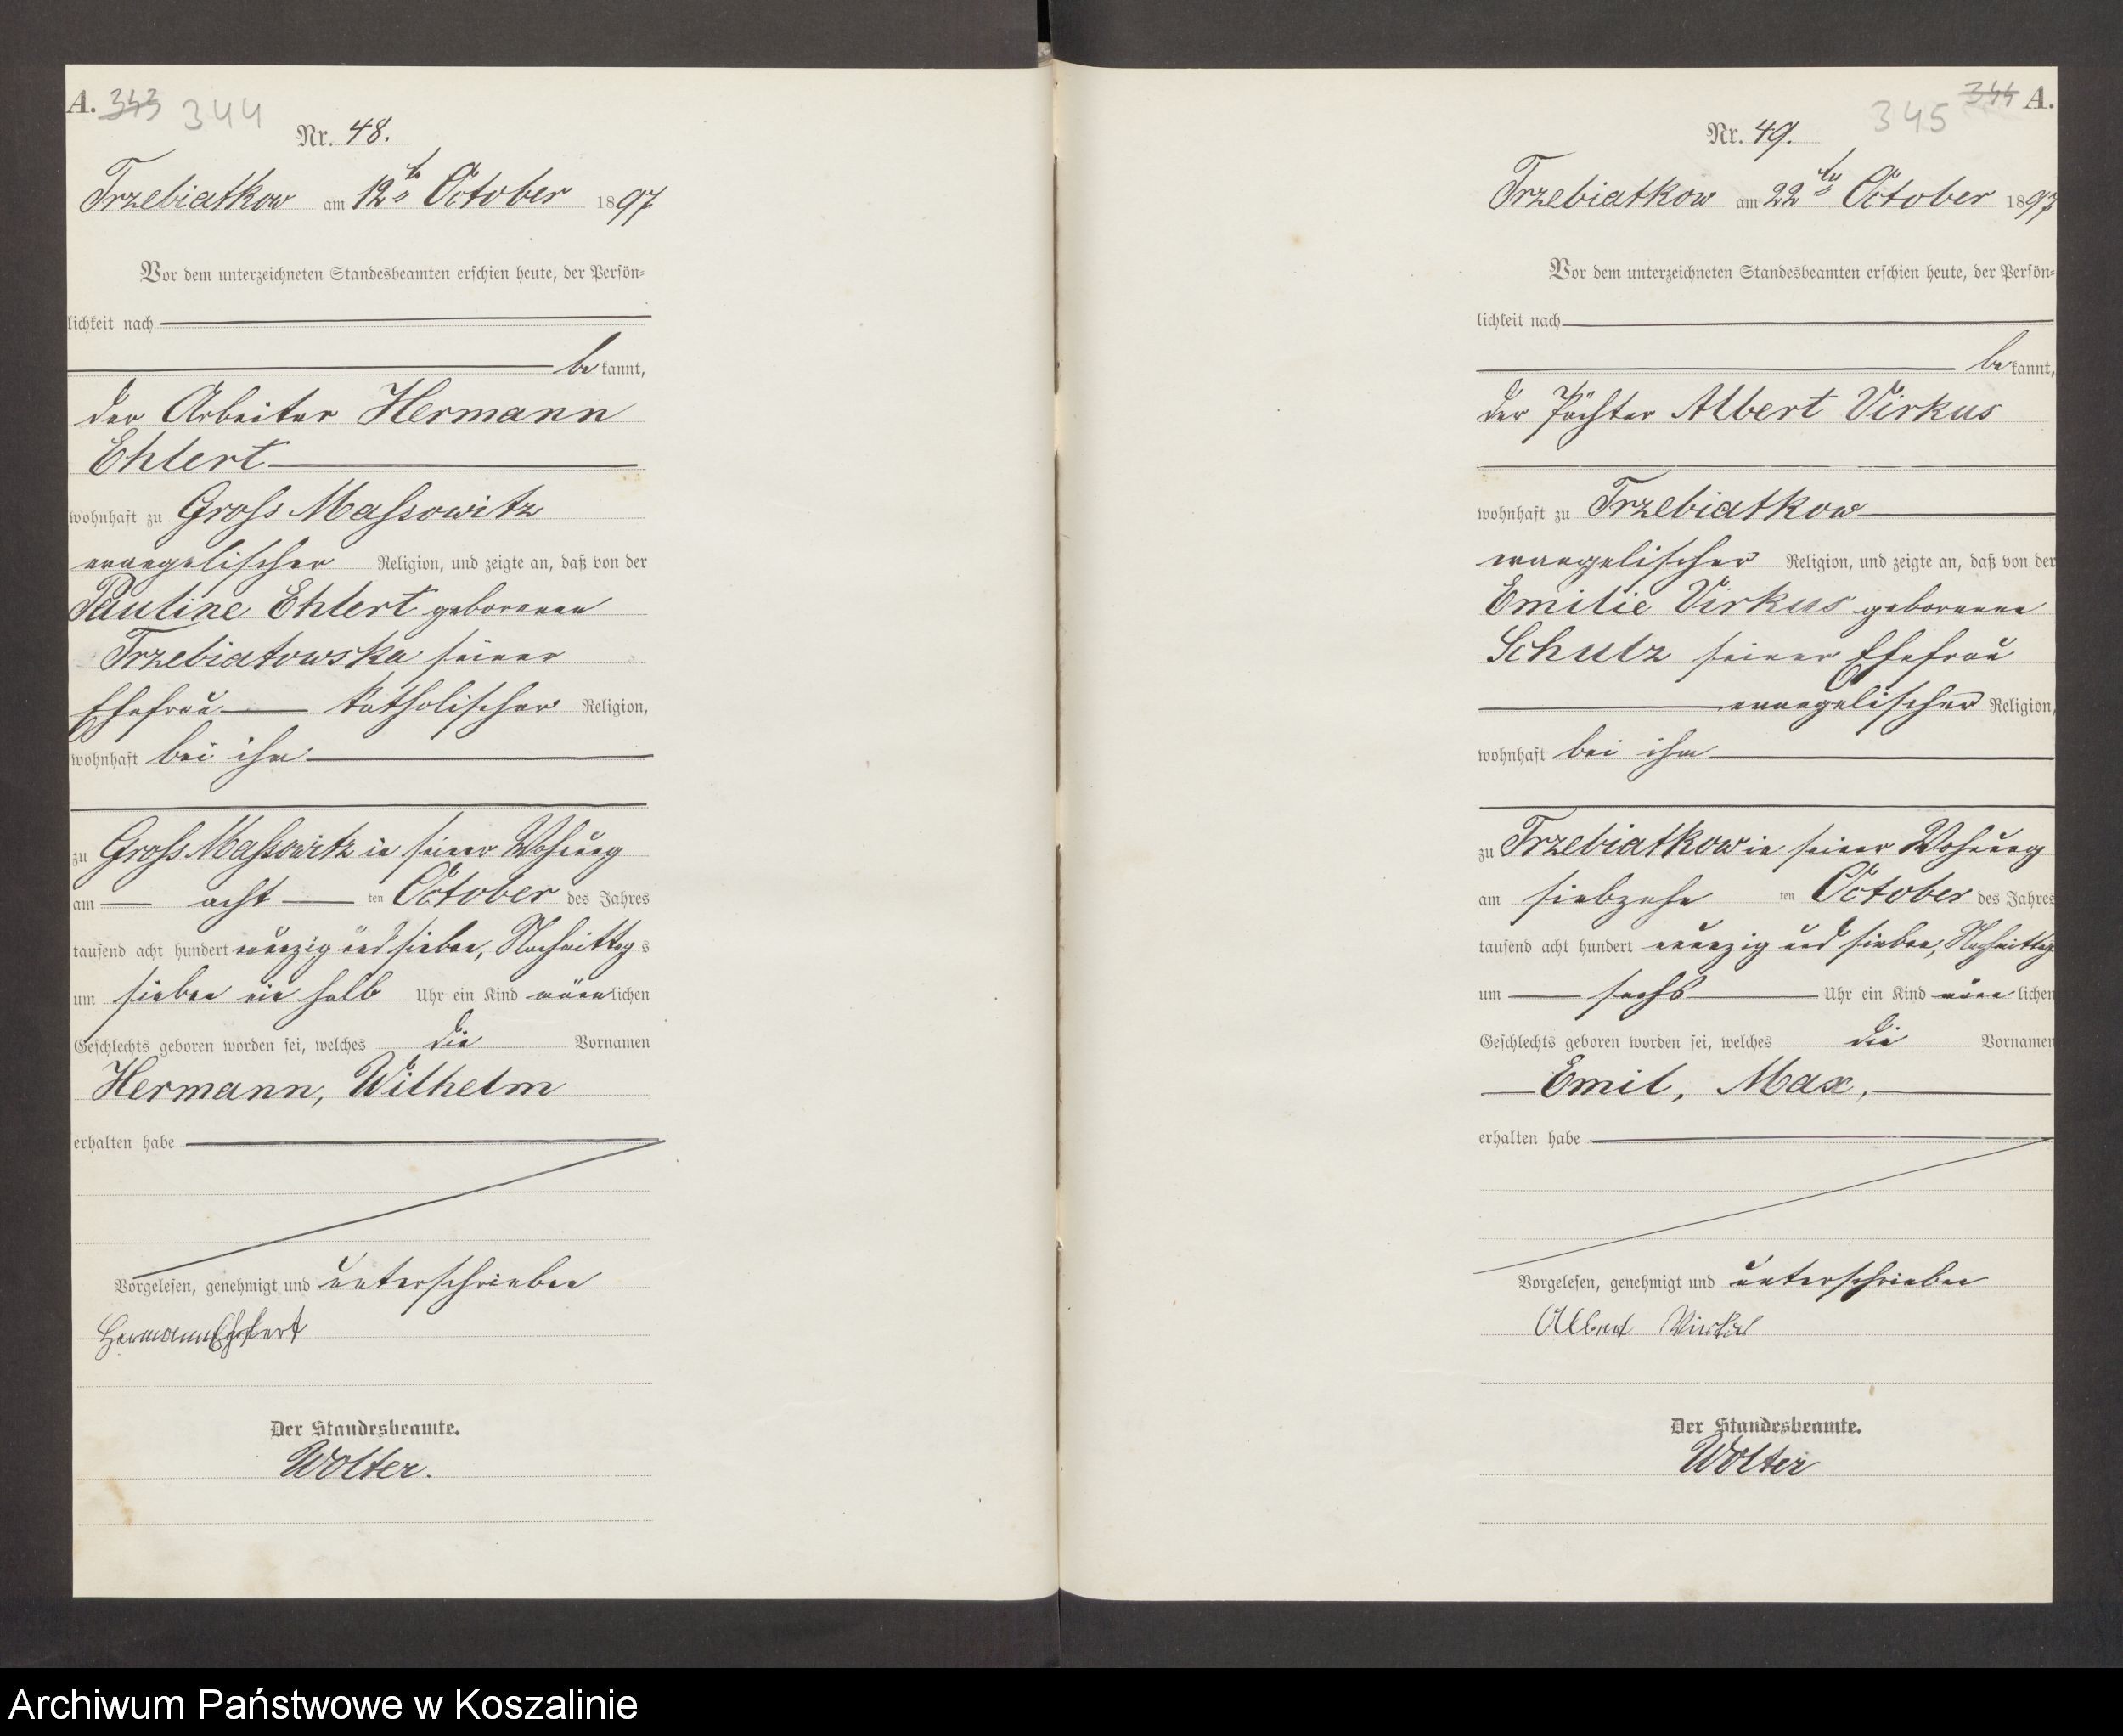 A. 343 344
Nr. 48.
Trzebiatkow am 12ten October 1897
Vor dem unterzeichneten Standesbeamten erschien heute, der Persön-
lichkeit nach
bekannt,
der Arbeiter Hermann
Ehlert
wohnhaft zu Gross Massowitz
evangelischer Religion, und zeigte an, daß von der
Pauline Ehlert geborenen
Trzebiatowska seiner
Ehefrau katholischer Religion,
wohnhaft bei ihm
zu Gross Massowitz in seiner Wohnung
am acht ten October des Jahres
tausend acht hundert neunzig und sieben, Nachmittags
um sieben ein halb Uhr ein Kind männlichen
Geschlechts geboren worden sei, welches die Vornamen
Hermann, Wilhelm
erhalten habe
Vorgelesen, genehmigt und unterschrieben
Hermann Ehlert
Der Standesbeamte.
Wolter.
344 A.
345
Nr. 49.
Trzebiatkow am 22ten October 1897
Vor dem unterzeichneten Standesbeamten erschien heute, der Persön-
lichkeit nach
bekannt,
der Pächter Albert Virkus
wohnhaft zu Trzebiatkow
evangelischer Religion, und zeigte an, daß von der
Emilie Virkus geborenen
Schulz seiner Ehefrau
evangelischer Religion,
wohnhaft bei ihm
zu Trzebiatkow in seiner Wohnung
am siebzehn ten October des Jahres
tausend acht hundert neunzig und sieben, Nachmittag
um sechs Uhr ein Kind männlichen
Geschlechts geboren worden sei, welches die Vornamen
Emil, Max,
erhalten habe
Vorgelesen, genehmigt und unterschrieben
Albert Virkus
Der Standesbeamte.
Wolter
Archiwum Państwowe w Koszalinie